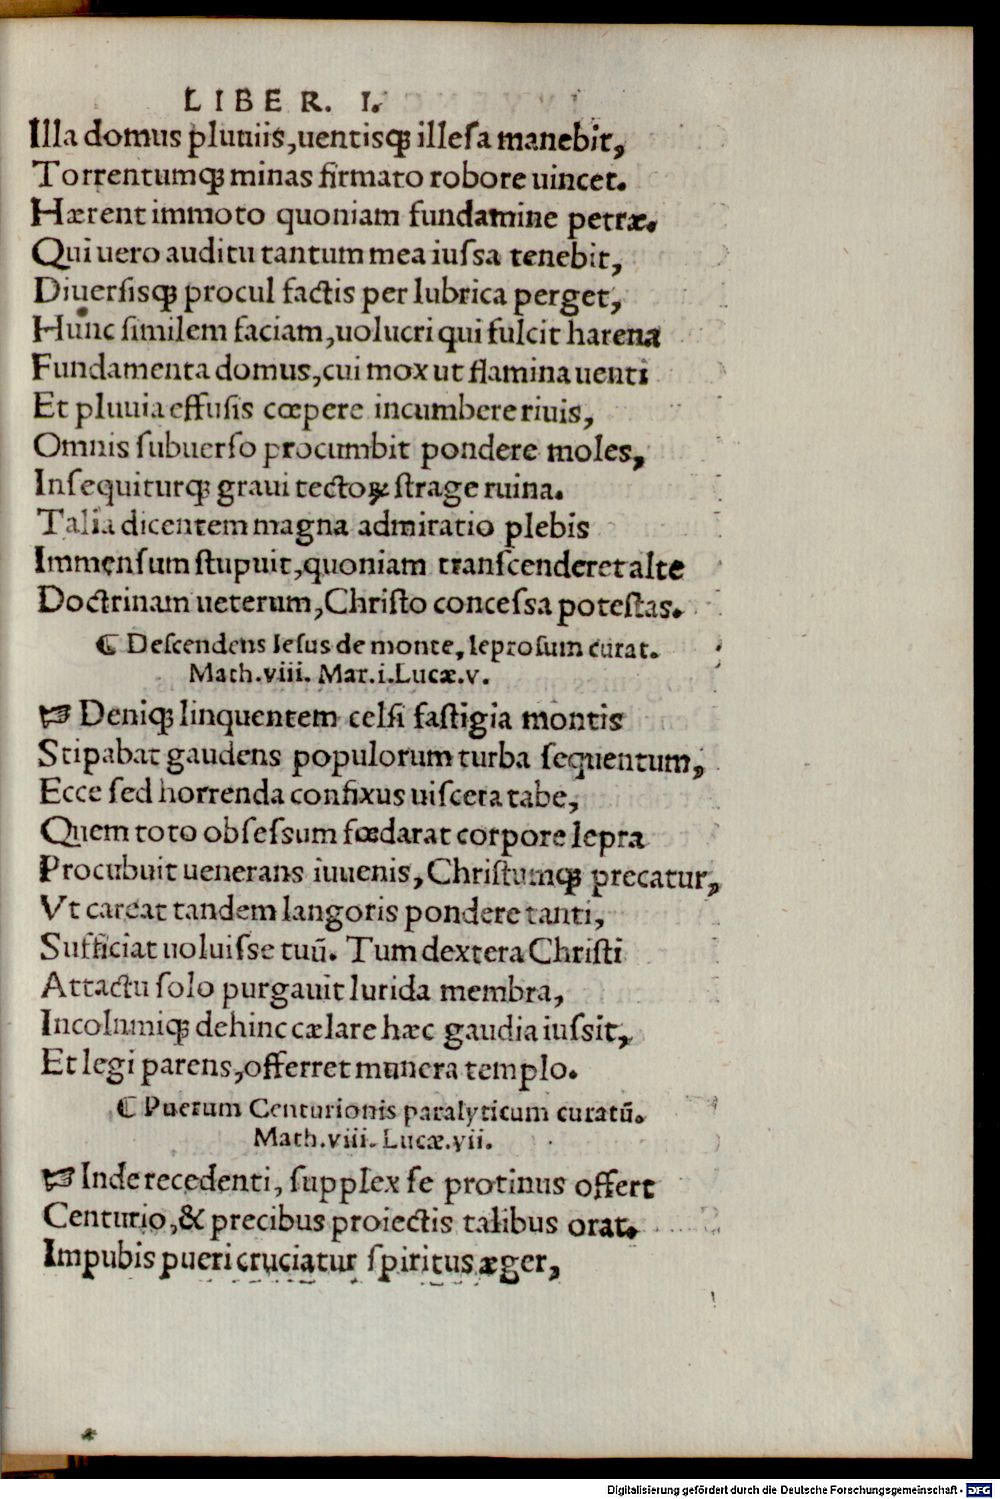 LIBER. I.
Illa domus pluuiis,uentisqꝫ illeſa manebit,
Torrentumqꝫ minas firmato robore uincet.
Hærent immoto quoniam fundamine petræ.
Qui uero auditu tantum mea iuſsa tenebit,
Diuerſisqꝫ procul factis per lubrica perget,
Hunc ſimilem faciam,uolucri qui fulcit harena
Fundamenta domus,cui mox ut flamina uenti
Et pluuia effuſis cœpere incumbere riuis,
Omnis ſubuerſo procumbit pondere moles,
Inſequiturqꝫ graui tectoꝝ ſtrage ruina.
Talia dicentem magna admiratio plebis
Immenſum ſtupuit,quoniam tranſcenderet alte
Doctrinam ueterum,Chriſto conceſsa poteſtas.
⸿ Deſcendens Ieſus de monte, leproſum curat.
Math.viii. Mar.i.Lucæ.v.
☞ Deniqꝫ linquentem celſi faſtigia montis
Stipabat gaudens populorum turba ſequentum,
Ecce ſed horrenda confixus uiſcera tabe,
Quem toto obſeſsum fœdarat corpore lepra
Procubuit uenerans iuuenis, Chriſtumqꝫ precatur,
Vt careat tandem langoris pondere tanti,
Sufficiat uoluiſse tuũ. Tum dextera Chriſti
Attactu ſolo purgauit lurida membra,
Incolumiqꝫ dehinc cælare hæc gaudia iuſsit,
Et legi parens,offerret munera templo.
⸿ Puerum Centurionis paralyticum curatũ.
Math.viii. Lucæ.vii.
☞ Inde recedenti, ſupplex ſe protinus offert
Centurio,& precibus proiectis talibus orat.
Impubis pueri cruciatur ſpiritus æger,
Digitalisierung gefördert durch die Deutsche Forschungsgemeinschaft - DFG